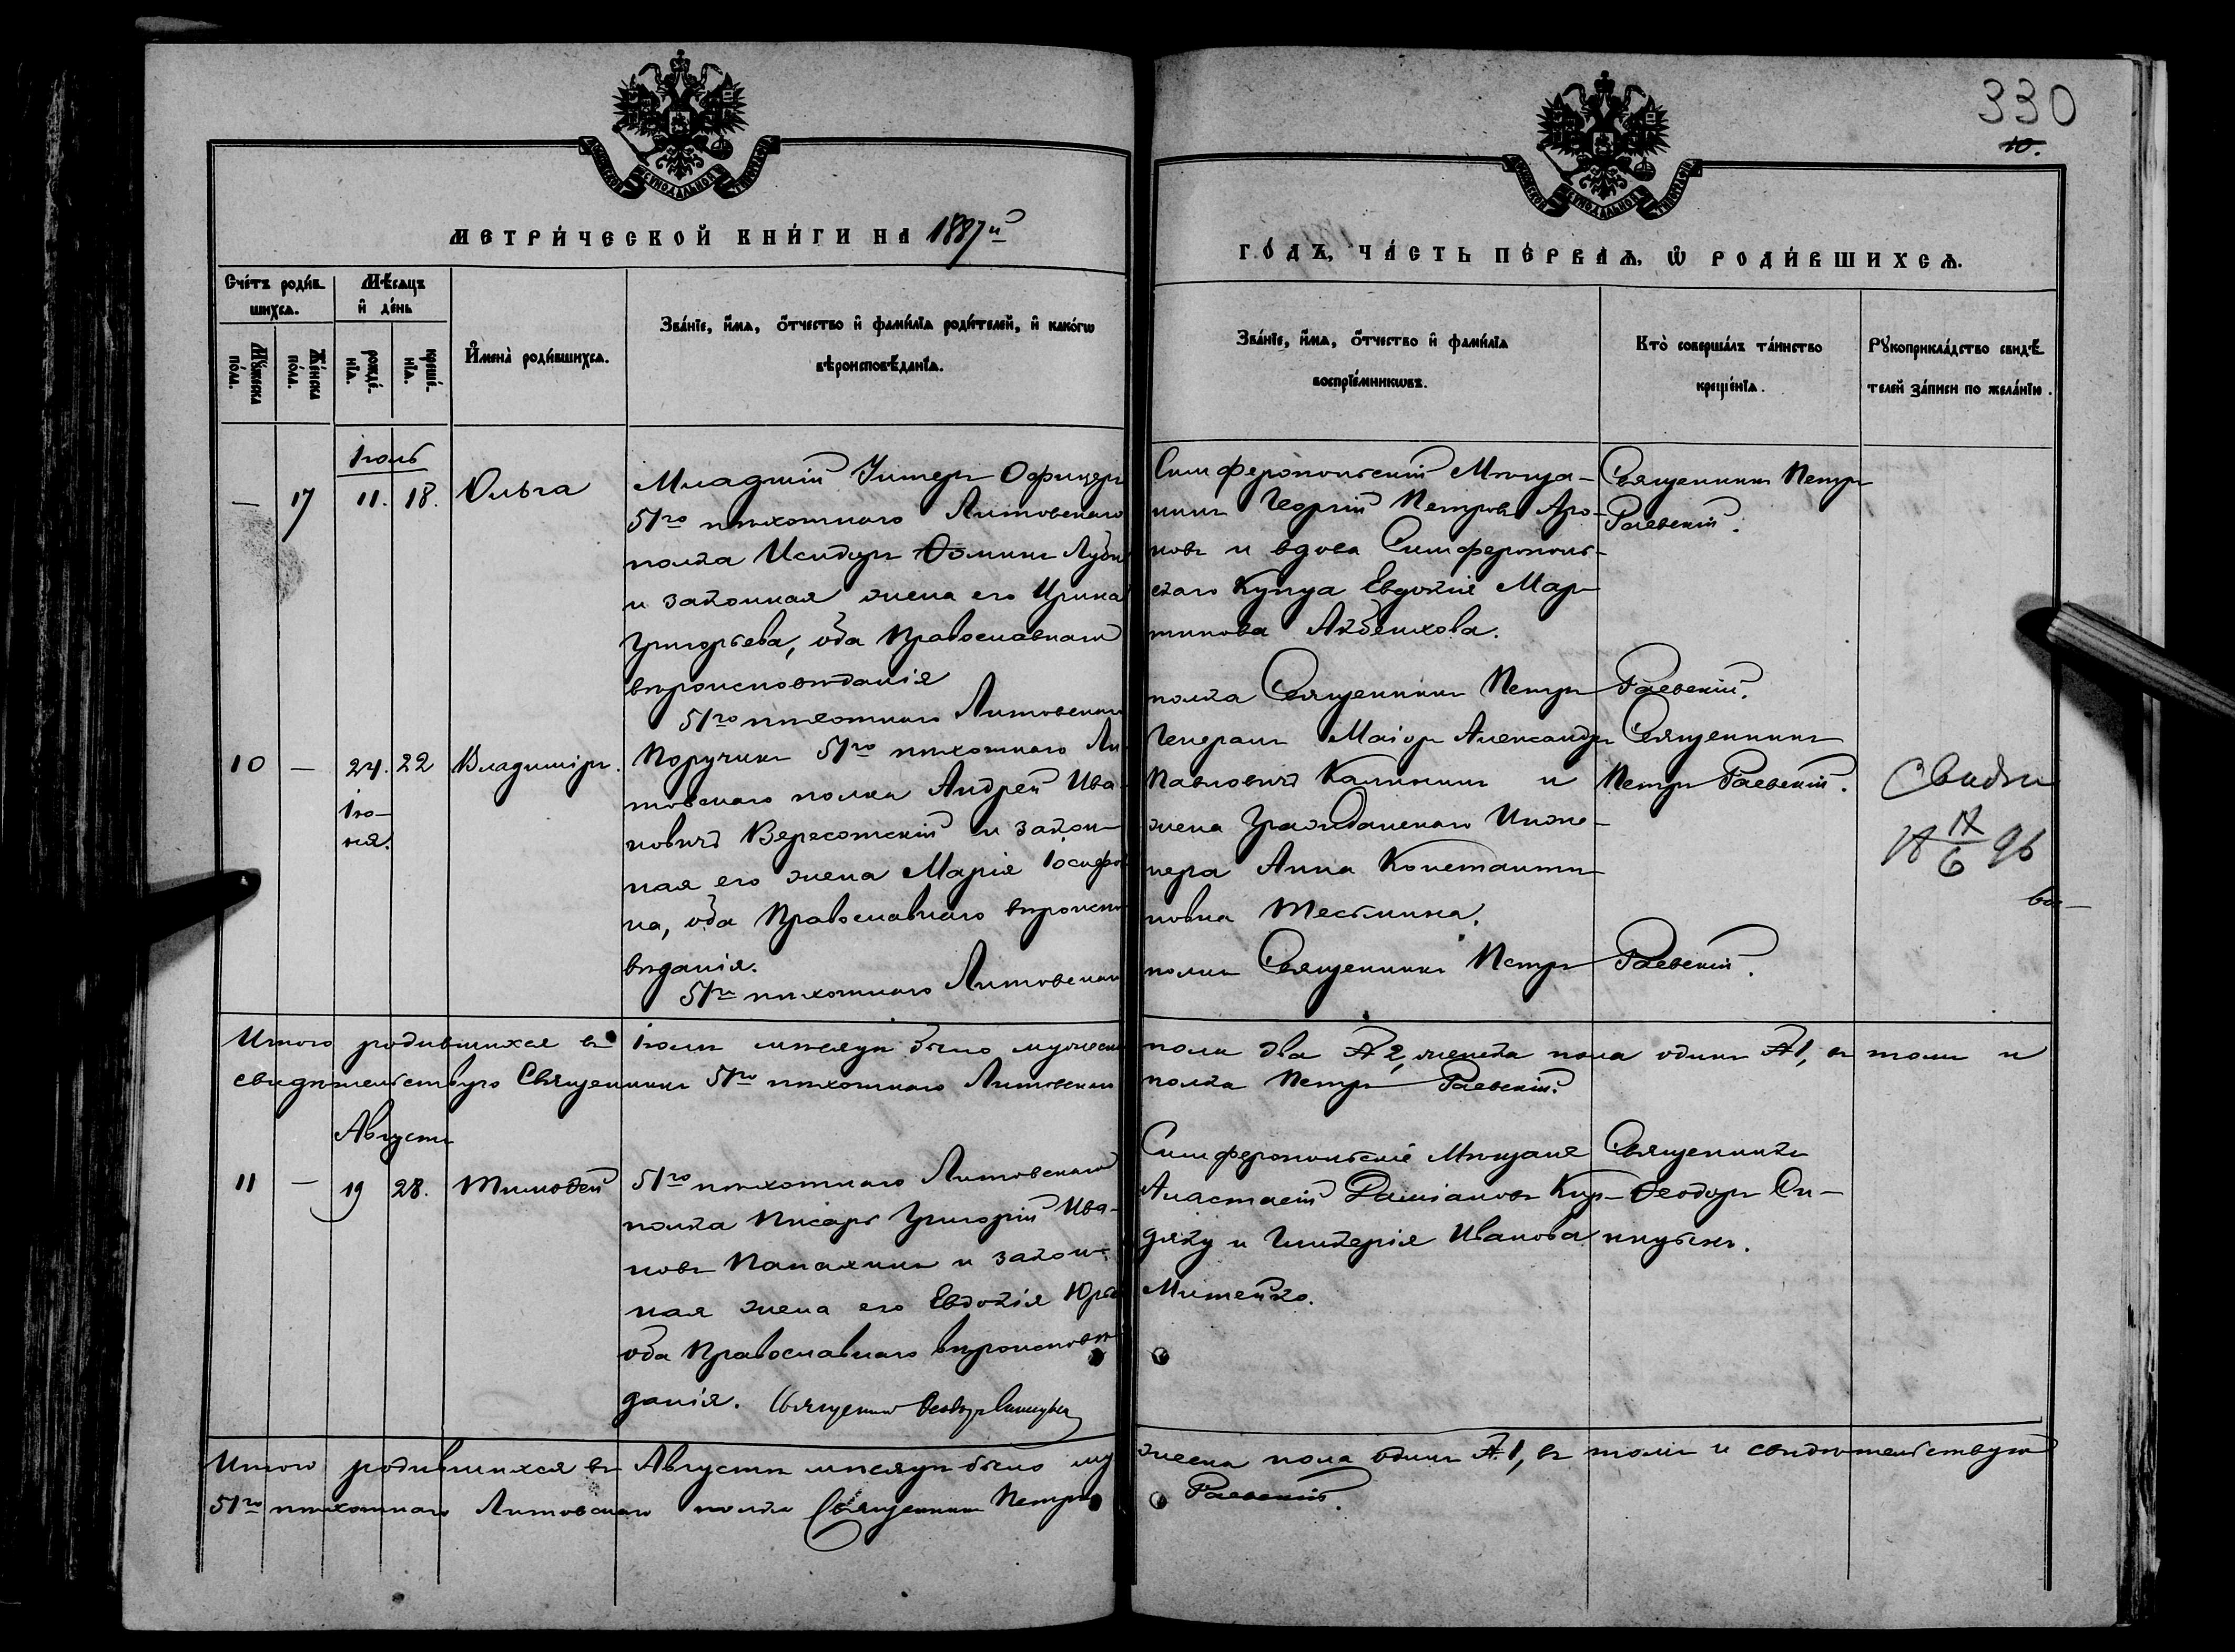 330
10.
МЕТРИ́ЧЕСКОЙ КНИ́ГИ НА 1887й
ГО́ДЪ, ЧА́СТЬ ПЕ́РВАѦ, Ѡ РОДИ́ВШИХСѦ.
Сче́тъ роди́в-
шихсѧ.
Мꙋ́жеска по́ла.
Же́нска по́ла.
Мѣ́сѧцъ
и҆ де́нь
рожде́-
нїѧ.
креще́-
нїѧ.
И҆мена̀ роди́вшихсѧ.
Зва́нїе, и҆́мѧ, ѻ҆́тчество и҆ фами́лїѧ роди́телей, и҆ како́гѡ
вѣроисповѣ́данїѧ.
Зва́нїе, и҆́мѧ, ѻ҆́тчество и҆ фами́лїѧ
воспрїе́мникѡвъ.
Кто̀ соверша́лъ та́инство
креще́нїѧ.
Рꙋкоприкла́дство свидѣ́-
телей за́писи по жела́нїю.
Іюль
— 17 11. 18. Ольга
Младшій Унтеръ Офицеръ
51го пѣхотнаго Литовскаго
полка Исидоръ Ѳоминъ
и законная жена его Ирина
Григорьева, оба Православнаго
вѣроисповѣданія
51го пѣхотнаго Литовскаго
Симферопольскій Мѣща-
нинъ Георгій Петровъ Аро-
новъ и вдова Симферополь-
скаго Купца Евдокія Мар-
тинова
полка Священникъ Петръ Раевскій.
Священникъ Петръ
Раевскій.
10 — 24. 22 Владиміръ.
Ію-
ня.
Поручикъ 51го пѣхотнаго Ли-
товскаго полка Андрей Ива-
новичъ Вересотскій и закон-
ная его жена Марія Іосифов
на, оба Православнаго вѣроиспо
вѣданія.
51го пѣхотнаго Литовскаго
Генералъ Маіоръ Александръ
Павловичъ Калининъ и
жена Гражданскаго Инже-
нера Анна Константи-
новна Тесьмина.
полка Священникъ Петръ Раевскій.
Священникъ
Петръ Раевскій.
96
Итого родившихся въ Іюлѣ мѣсяцѣ было мужеска
пола два № 2, женска пола одинъ № 1, въ томъ и
свидѣтельствую Священникъ 51го пѣхотнаго Литовскаго
полка Петръ Раевскій.
Августъ
11 — 19 28. Тимоѳей
51го пѣхотнаго Литовскаго
полка Писарь Григорій Ива-
новъ Папахинъ и закон-
ная жена его Евдокія
оба Православнаго вѣроисповѣ
данія. Священникъ Ѳеодоръ Синицынъ
Симферопольскіе Мѣщане
Анастасій Даміановъ Кир-
дяку и Гликерія Иванова
Митейко.
Священникъ
Ѳеодоръ Си-
ницынъ.
Итого родившихся въ Августѣ мѣсяцѣ было му
жеска пола одинъ № 1, въ томъ и свидѣтельствую
51го пѣхотнаго Литовскаго полка Священникъ Петръ
Раевскій.